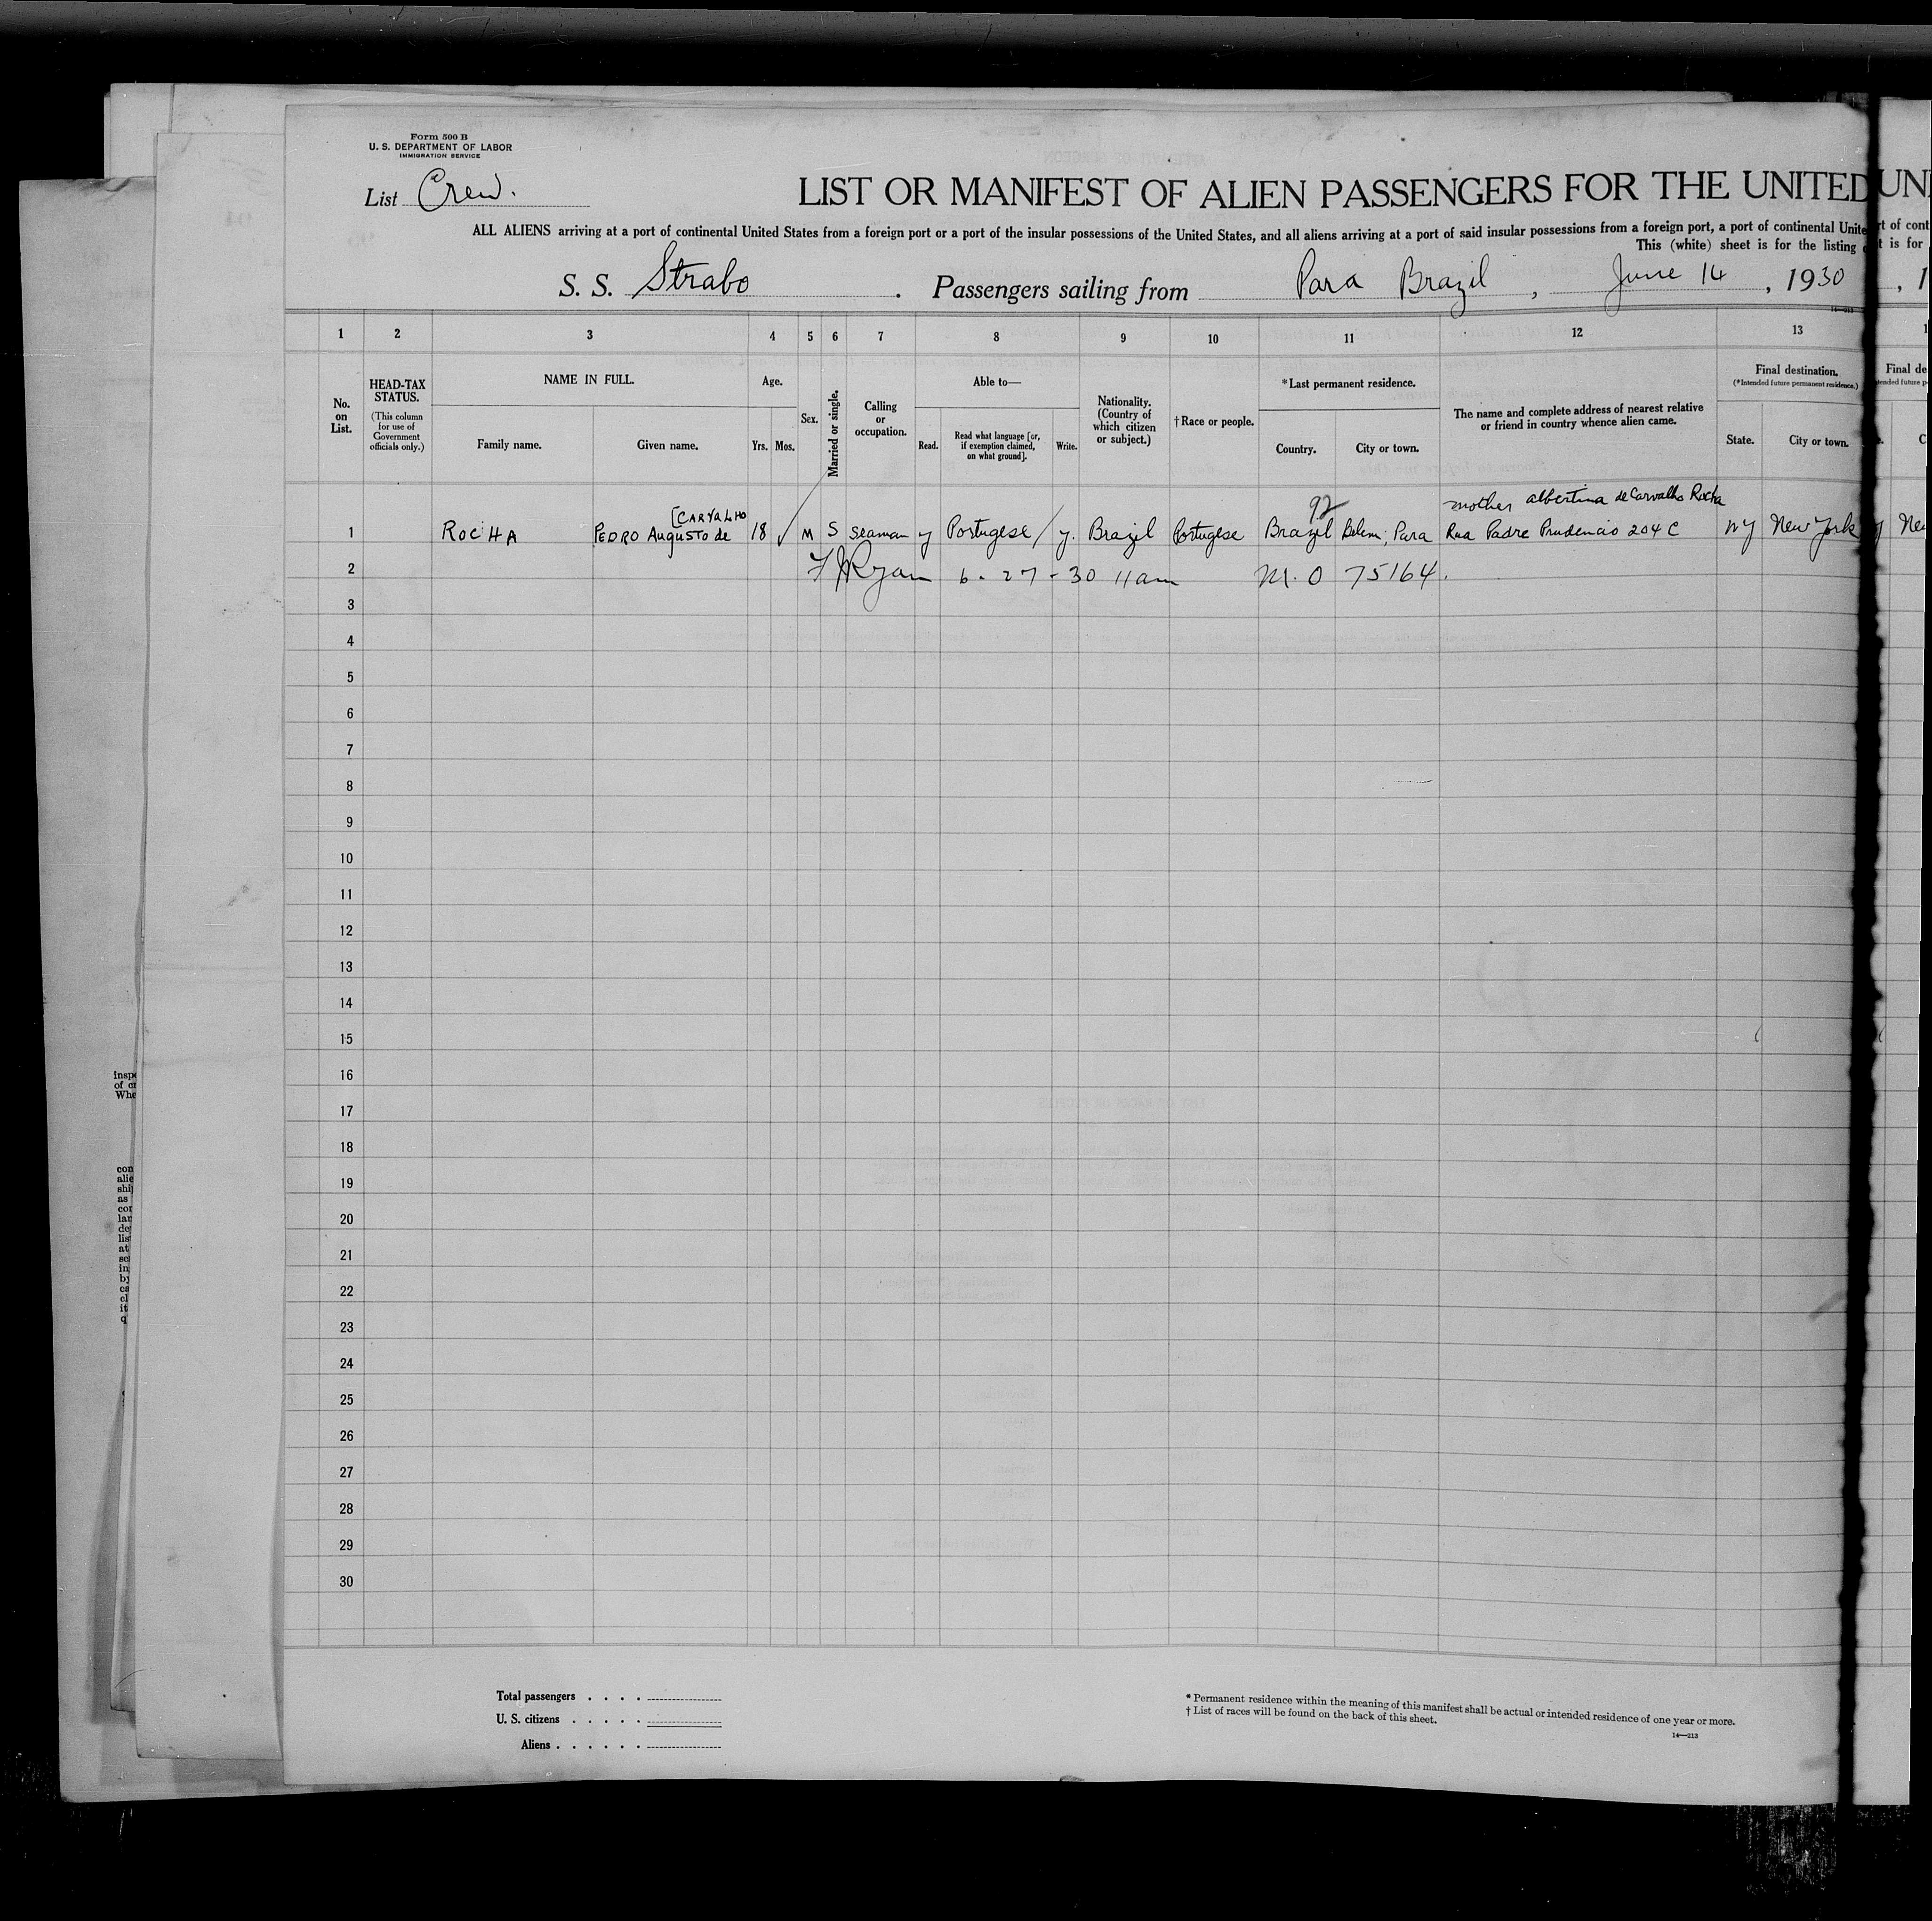 Form 500 B
U. S. DEPARTMENT OF LABOR
IMMIGRATION SERVICE
List Crew.
LIST OR MANIFEST OF ALIEN PASSENGERS FOR THE UNITED
ALL ALIENS arriving at a port of continental United States from a foreign port or a port of the insular possessions of the United States, and all aliens arriving at a port of said insular possessions from a foreign port, a port of continental Unite
This (white) sheet is for the listing
S. S. Strabo . Passengers sailing from Para Brazil , June 14 , 1930
1 2 3 4 5 6 7 8 9 10 11 12 13
No. on List.
HEAD-TAX STATUS.
(This column for use of Government officials only.)
NAME IN FULL.
Family name. Given name.
Age.
Yrs. Mos.
Sex.
Married or single.
Calling or occupation.
Able to—
Read. Read what language [or, if exemption claimed, on what ground]. Write.
Nationality. (Country of which citizen or subject.)
† Race or people.
*Last permanent residence.
Country. City or town.
The name and complete address of nearest relative or friend in country whence alien came.
Final destination.
(*Intended future permanent residence.)
State. City or town.
92 mother albertina de Carvalho Rocha
[CARVALHO
1 ROCHA PEDRO Augusto de 18 M S Seaman y Portugese / y. Brazil Portugese Brazil Belem; Para Rua Padre Prudencio 204 C NY New York
2 Ryan 6-27-30 11am M.O 75164.
3
4
5
6
7
8
9
10
11
12
13
14
15
16
17
18
19
20
21
22
23
24
25
26
27
28
29
30
Total passengers . . . .
U. S. citizens . . . . .
Aliens . . . . . .
* Permanent residence within the meaning of this manifest shall be actual or intended residence of one year or more.
† List of races will be found on the back of this sheet.
14—213